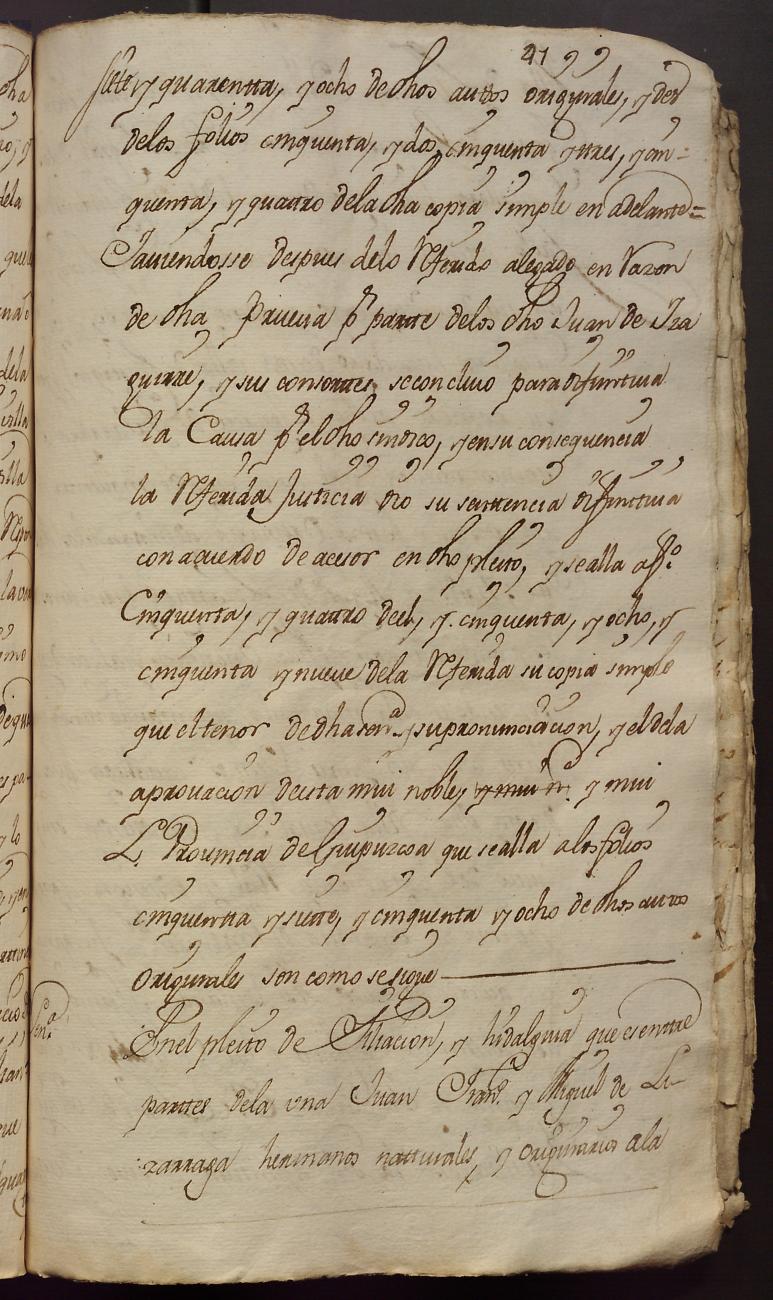 41 99
siete, y quarentta, y ocho de dhos auttos originales, y del
delos folios cinquenta, y dos, cinquenta y tres, y cin=
quenta, y quattro dela dha copia simple en adelante=
Haviendosse despues delo Referido alegado en Razon
de dha Prueva pr partte delos dho Juan de Iza
guirre, y sus consorttes, se concluio para difinittiva
la Causa pr el dho sindico, y en su consequencia
la Referida Justicia dio su senttencia difinittiva
con aquerdo de acesor en dho pleito, y se alla a fo.
Cinquenta, y quattro deel, y cinquenta, y ocho, y
cinquenta y nueve dela Referida su copia simple
que el tenor de dha sena. y su pronunciacion, y el dela
aprovacion de esta mui noble, y mui n. y mui
L. Provincia de Guipuzcoa que se alla a los folios
cinquentta y siette, y cinquenta y ocho de dhos autos
Originales son como se sigue
Sena.
En el pleito de Filiacion, y hidalguia que es enttre
parttes dela vna Juan Frano. y Miguel de Li-
zarraga hermanos natturales, y originarios ala